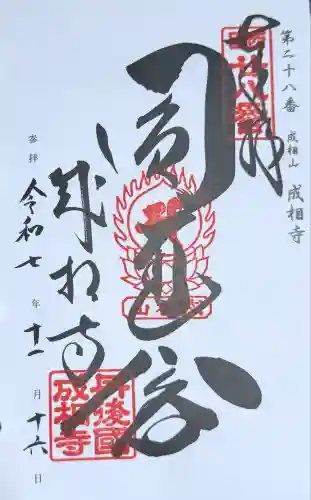 第二十八番 成相山 成相寺
奉拝
圓通閣
成相寺
参拝 令和七年十一月十六日
丹後國
成相寺